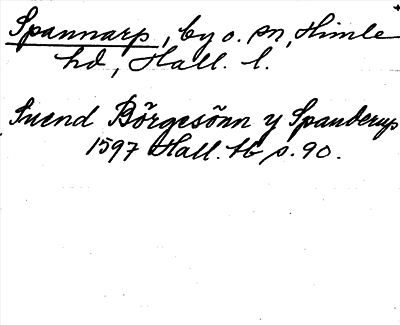 Spannarp, by o. sn, Himle
hd, Hall. l.
Suend Börgesönn y Spanderup
1597 Hall. tb s. 90.